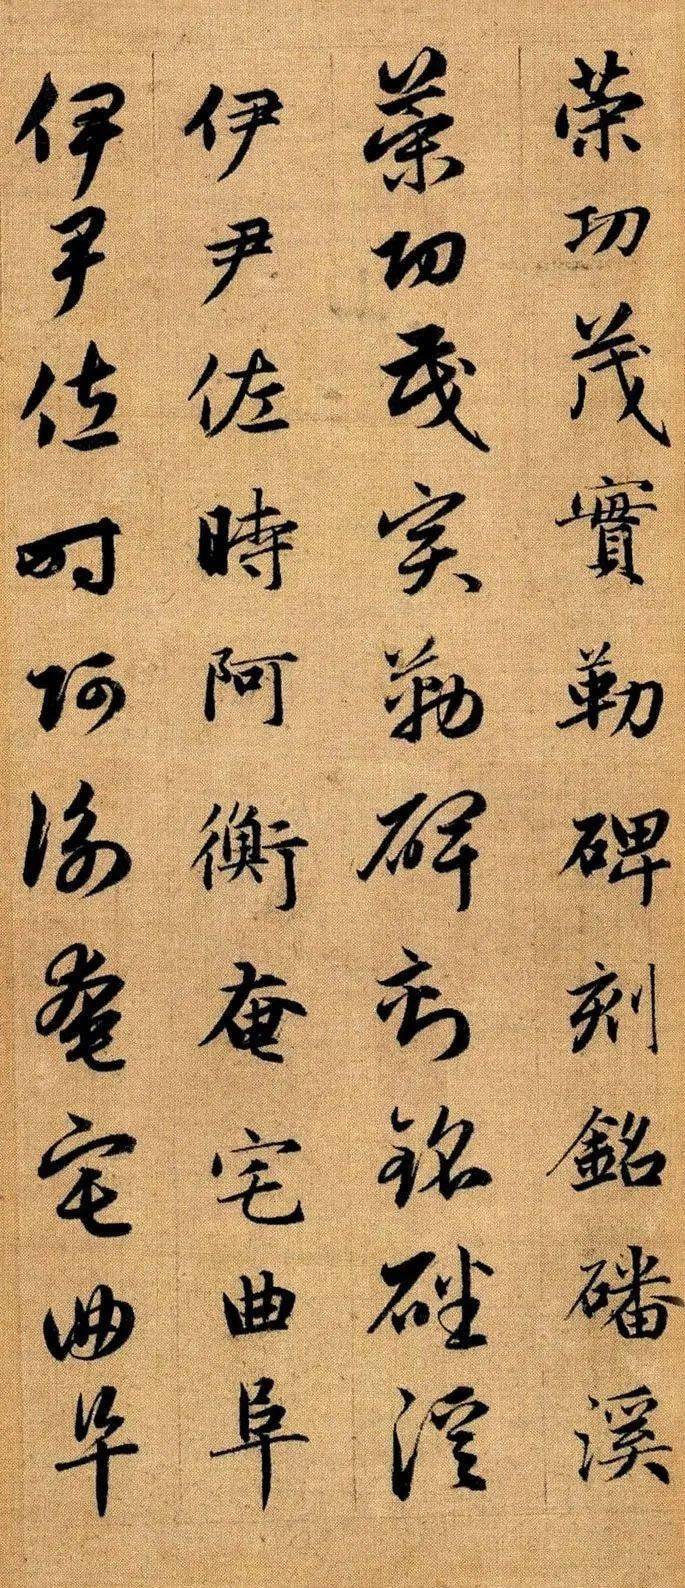 榮功茂實勒碑刻銘磻溪
榮功茂实勒碑刻銘磻溪
伊尹佐時阿衡奄宅曲阜
伊尹佐时阿衡奄宅曲阜